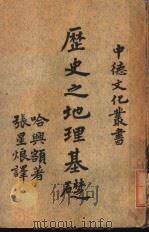 中德文化叢書
歷史之地理基礎
哈興額著
張星烺譯